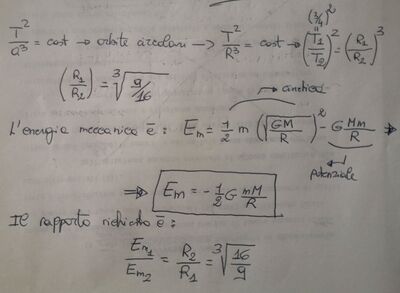 T²/a³ = cost → orbite circolari → T²/R³ = cost → (T₁/T₂)² = (R₁/R₂)³
(3/4)²
"
(R₁/R₂) = ³√(9/16)
→ cinetica
L'energia meccanica è: Em = 1/2 m (√(GM/R))² - GMm/R ⇒
potenziale
⇒ Em = -1/2 G mM/R
Il rapporto richiesto è:
Em₁/Em₂ = R₂/R₁ = ³√(16/9)